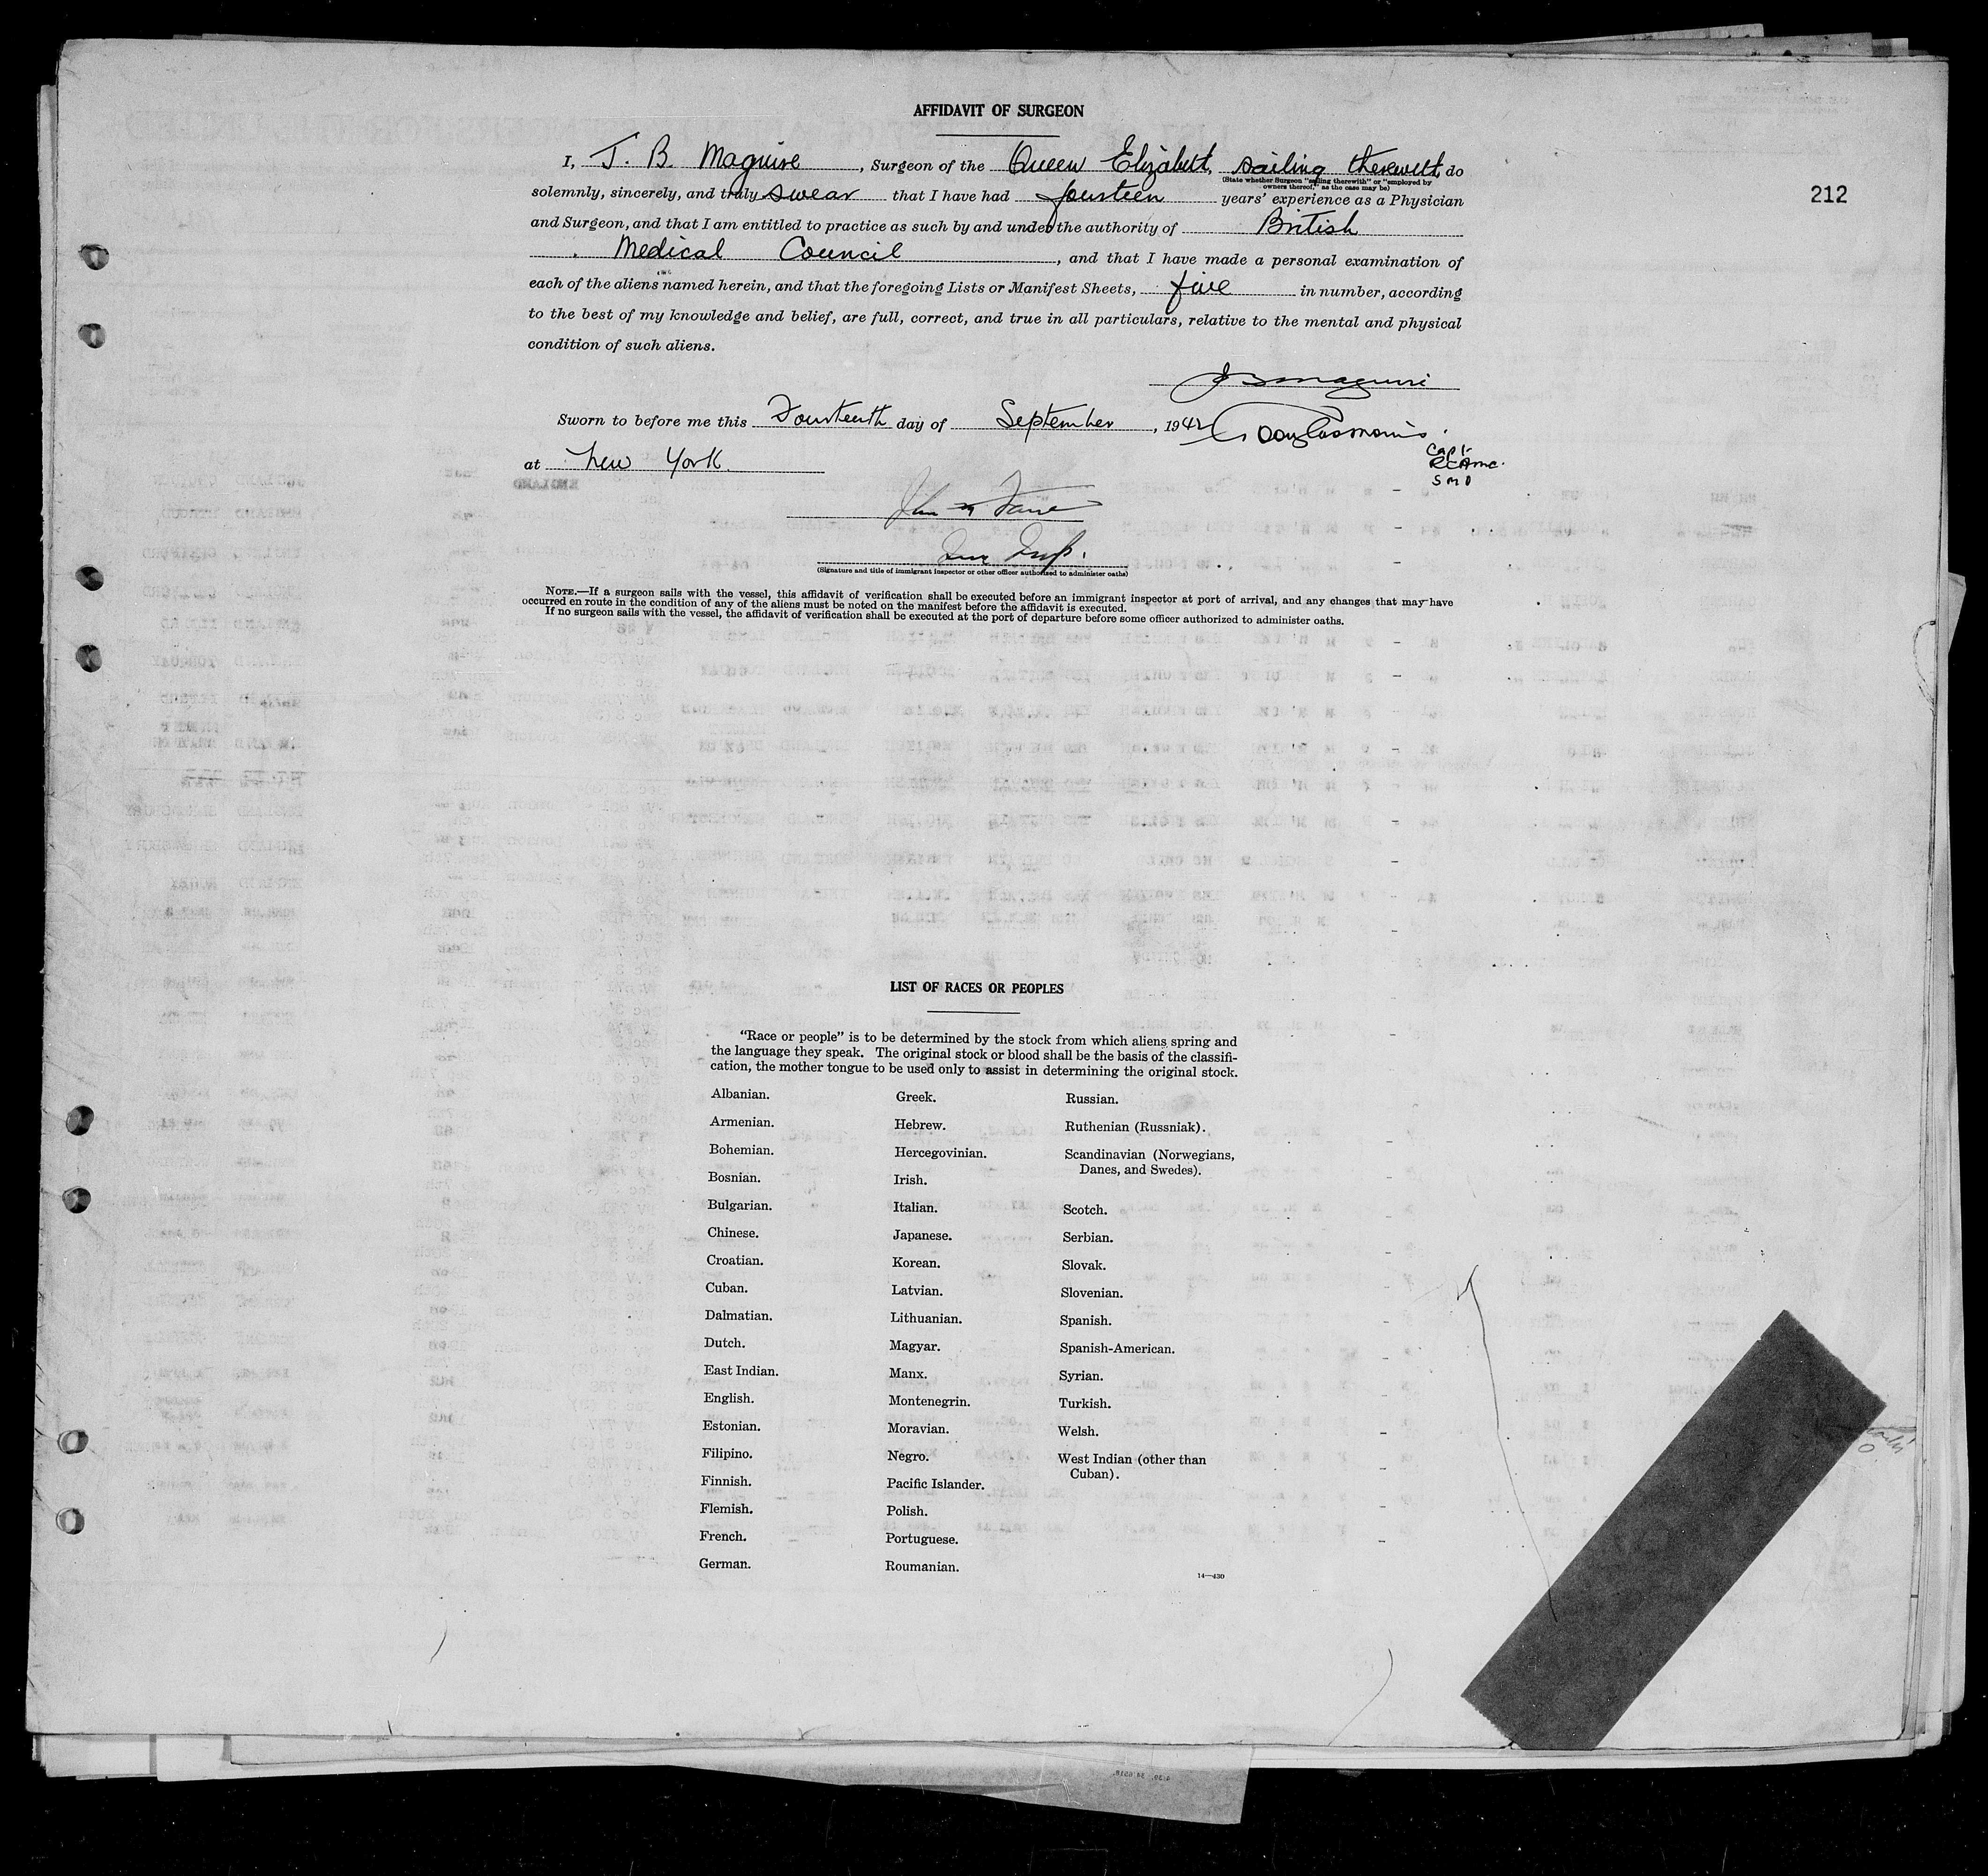 AFFIDAVIT OF SURGEON
I, J. B. Maguire, Surgeon of the Queen Elizabeth, sailing therewith, do
(State whether Surgeon "sailing therewith" or "employed by
owners thereof," as the case may be)
212
solemnly, sincerely, and truly swear that I have had fourteen years' experience as a Physician
and Surgeon, and that I am entitled to practice as such by and under the authority of British
Medical Council, and that I have made a personal examination of
each of the aliens named herein, and that the foregoing Lists or Manifest Sheets, five in number, according
to the best of my knowledge and belief, are full, correct, and true in all particulars, relative to the mental and physical
condition of such aliens.
J B Maguire
Sworn to before me this Fourteenth day of September, 1942
Capt.
RCAMC.
SMO
at New York
(Signature and title of immigrant inspector or other officer authorized to administer oaths)
NOTE.—If a surgeon sails with the vessel, this affidavit of verification shall be executed before an immigrant inspector at port of arrival, and any changes that may have
occurred en route in the condition of any of the aliens must be noted on the manifest before the affidavit is executed.
If no surgeon sails with the vessel, the affidavit of verification shall be executed at the port of departure before some officer authorized to administer oaths.
LIST OF RACES OR PEOPLES
"Race or people" is to be determined by the stock from which aliens spring and
the language they speak. The original stock or blood shall be the basis of the classifi-
cation, the mother tongue to be used only to assist in determining the original stock.
Albanian.
Armenian.
Bohemian.
Bosnian.
Bulgarian.
Chinese.
Croatian.
Cuban.
Dalmatian.
Dutch.
East Indian.
English.
Estonian.
Filipino.
Finnish.
Flemish.
French.
German.
Greek.
Hebrew.
Hercegovinian.
Irish.
Italian.
Japanese.
Korean.
Latvian.
Lithuanian.
Magyar.
Manx.
Montenegrin.
Moravian.
Negro.
Pacific Islander.
Polish.
Portuguese.
Roumanian.
Russian.
Ruthenian (Russniak).
Scandinavian (Norwegians,
Danes, and Swedes).
Scotch.
Serbian.
Slovak.
Slovenian.
Spanish.
Spanish-American.
Syrian.
Turkish.
Welsh.
West Indian (other than
Cuban).
14—430